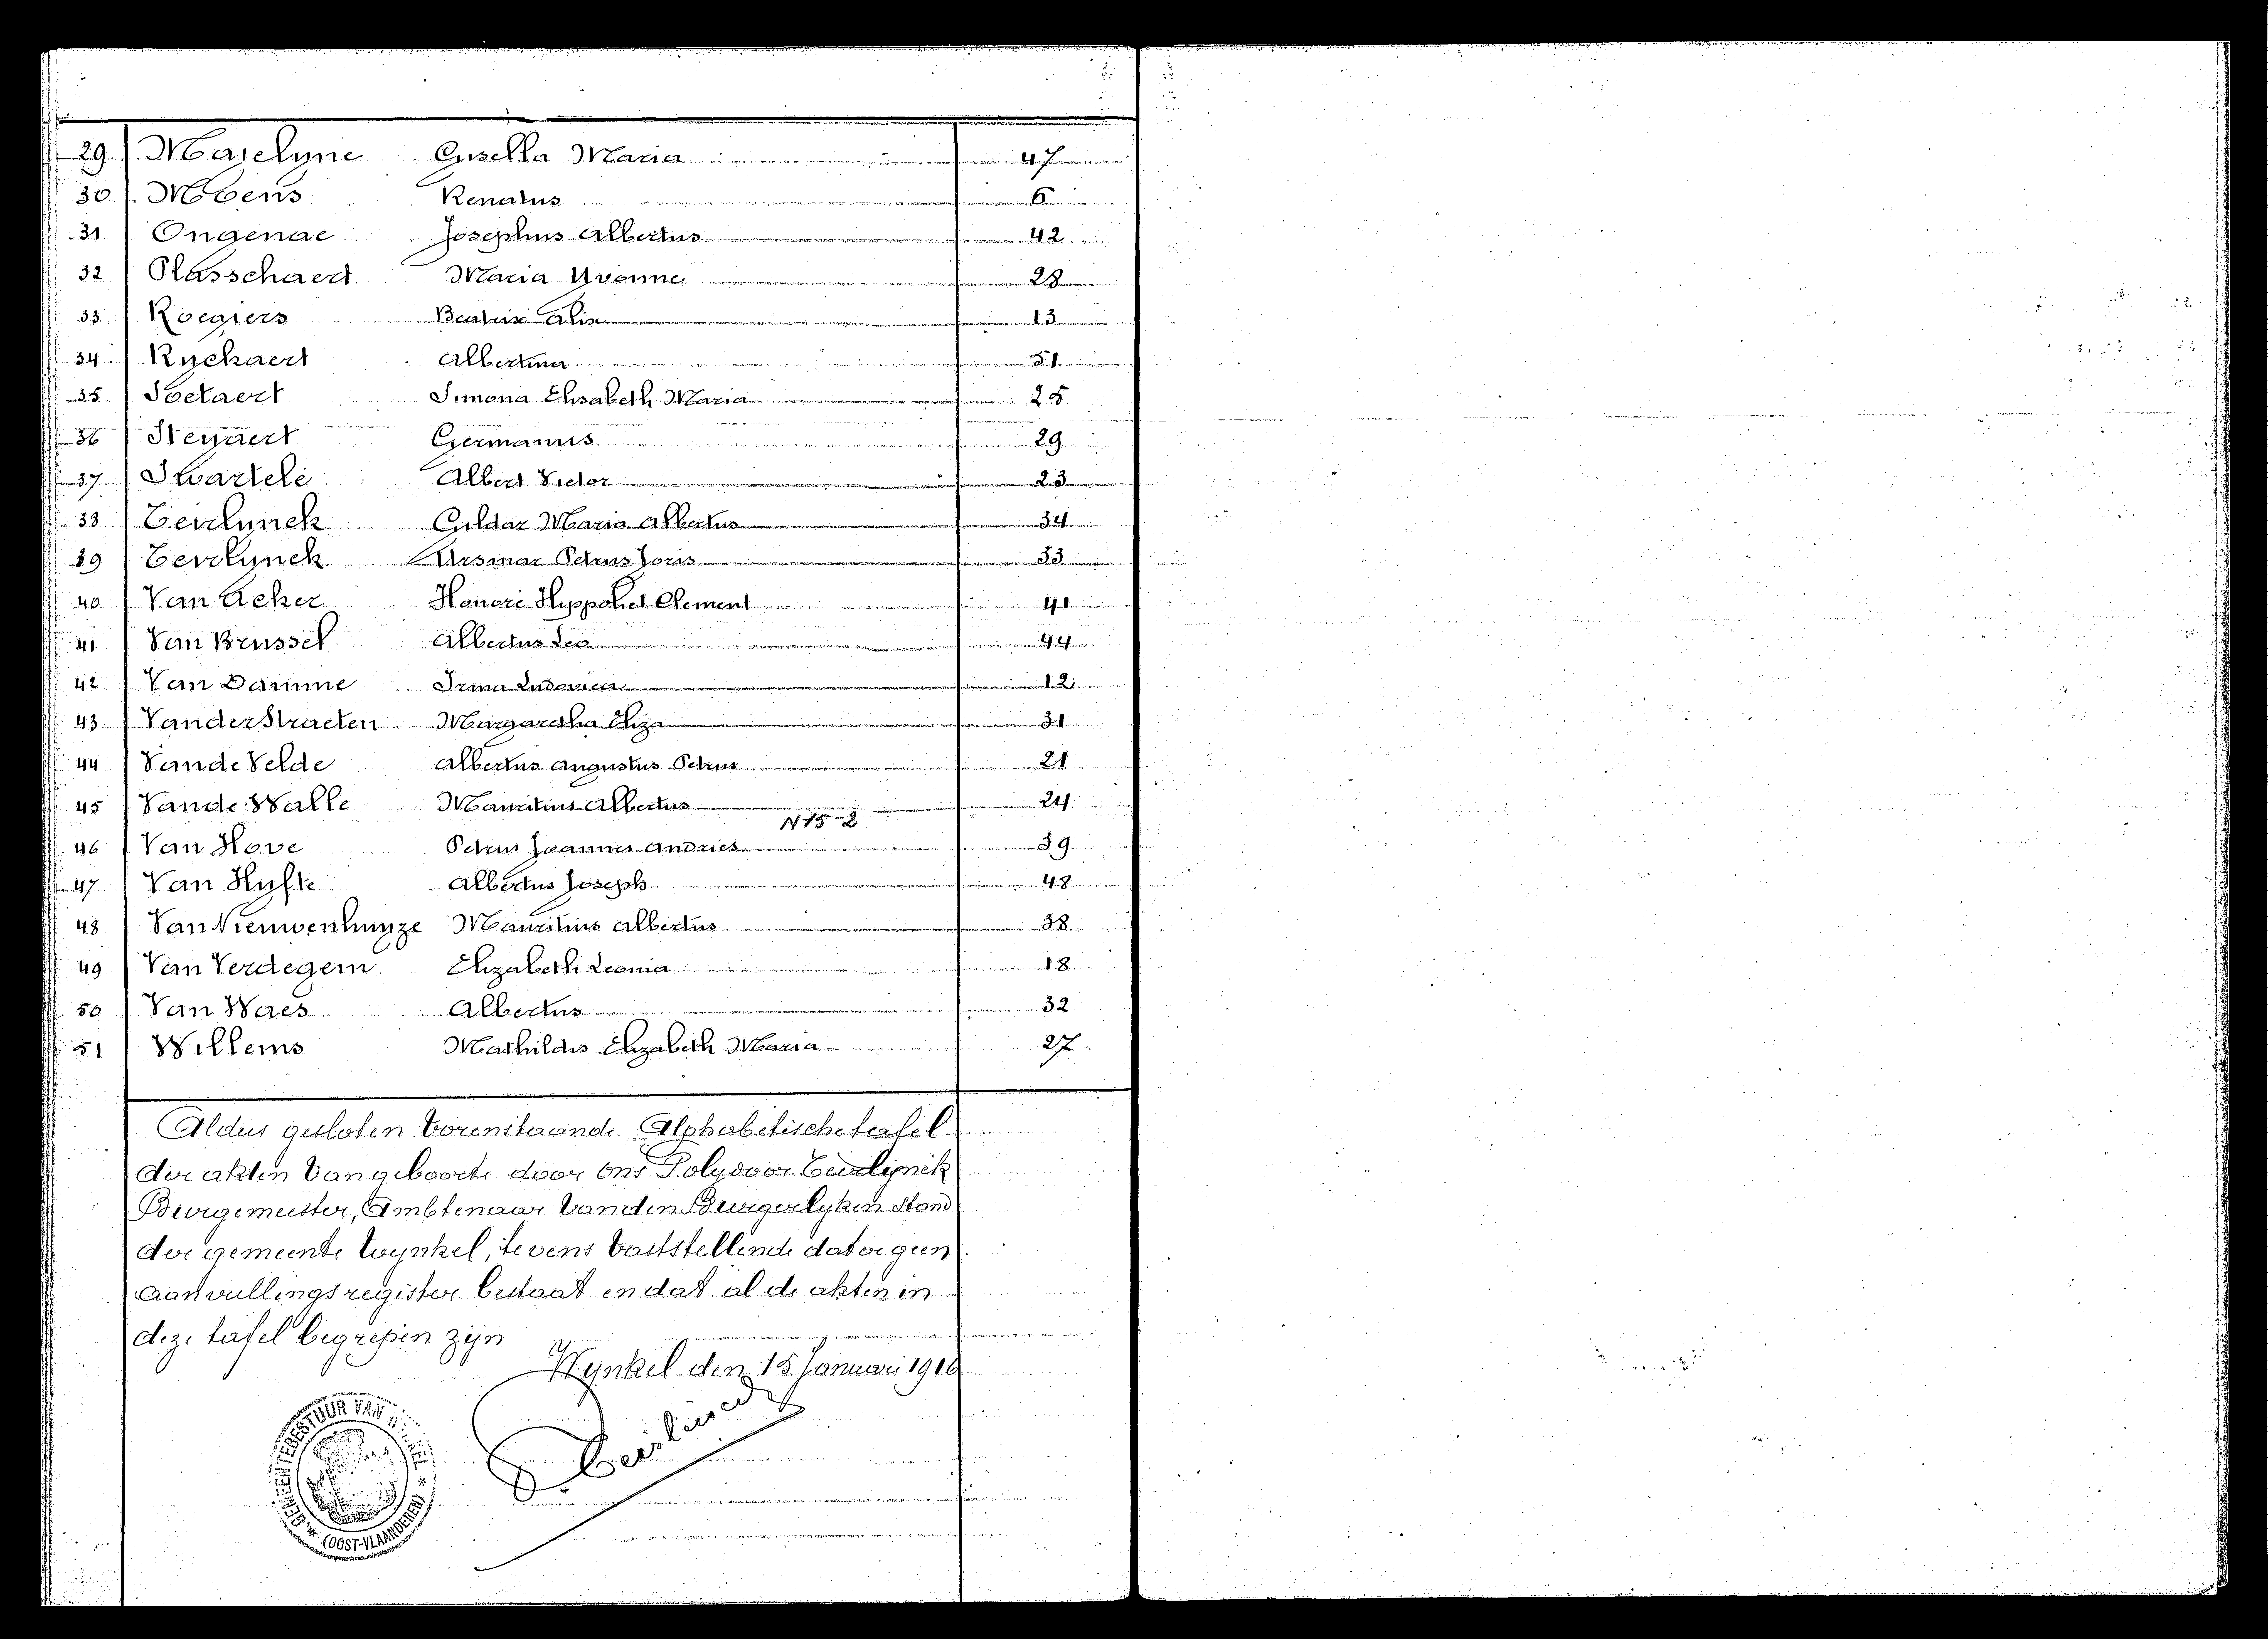 29 Maselyne Gisella Maria 47
30 Moens Renatus 6
31 Ongenae Josephus Albertus 42
32 Plasschaert Maria Yvonne 28
33 Roegiers Beatrix Alix 13
34 Ryckaert Albertina 51
35 Soetaert Simona Elisabeth Maria 25
36 Steyaert Germanus 29
37 Swartelé Albert Victor 23
38 Teirlynck Gildar Maria Albertus 34
39 Teirlynck Arsmar Petrus Joris 33
40 Van Acker Honoré Hyppoliet Clement 41
41 Van Brussel Albertus Leo 44
42 Van Damme Irma Ludovica 12
43 Vander Straeten Margaretha Eliza 31
44 Vande Velde Albertus Augustus Petrus 21
45 Vande Walle Mauritius Albertus 24
N 15-2
46 Van Hove Petrus Joannes Andries 39
47 Van Hufte Albertus Joseph 48
48 Van Nieuwenhuyze Mauritius Albertus 38
49 Van Verdegem Elizabeth Leonia 18
50 Van Waes Albertus 32
51 Willems Mathildis Elizabeth Maria 27
Aldus gesloten vorenstaande Alphabetische tafel
der akten van geboorte door ons Polydoor Teirlijnck
Burgemeester, Ambtenaar van den Burgerlyken Stand
der gemeente Wynkel, tevens vaststellende dat er geen
aanvullingsregister bestaat en dat al de akten in
deze tafel begrepen zijn
Wynkel den 15 Januari 1910
Teirlinck
GEMEENTEBESTUUR VAN
(OOST-VLAANDEREN)